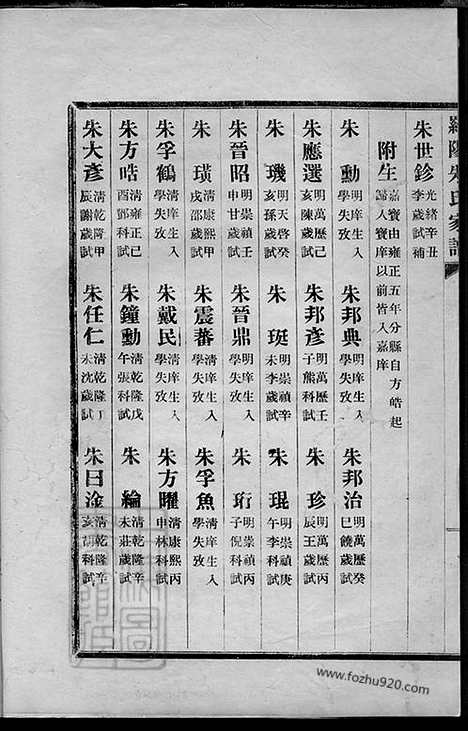 羅陽朱氏家譜
朱世鉁 光緒辛丑李歲試補
附生 嘉寶由雍正五年分縣自方皓起歸入寶庠以前皆入嘉庠
朱勳 明庠生入學失攷
朱邦典 明庠生入學失攷
朱邦治 明萬歷癸巳饒歲試
朱應選 明萬歷己亥陳歲試
朱邦彥 明萬歷壬子熊科試
朱珍 明萬歷丙辰王歲試
朱璣 明天啓癸亥孫歲試
朱珽 明崇禎辛未李歲試
朱琨 明崇禎庚午李科試
朱晉昭 明崇禎壬申甘歲試
朱晉鼎 明庠生入學失攷
朱珩 明崇禎丙子倪科試
朱璜 清康熙甲戌邵歲試
朱震蕃 清庠生入學失攷
朱孚魚 清庠生入學失攷
朱孚鶴 清庠生入學失攷
朱戴民 清庠生入學失攷
朱方曜 清康熙丙申林科試
朱方皓 清雍正己酉鄧科試
朱鐘動 清乾隆戊午張科試
朱綸 清乾隆辛未莊歲試
朱大彥 清乾隆甲辰謝歲試
朱任仁 清乾隆丁未沈歲試
朱日淦 清乾隆辛亥胡科試
www.fozhu920.com